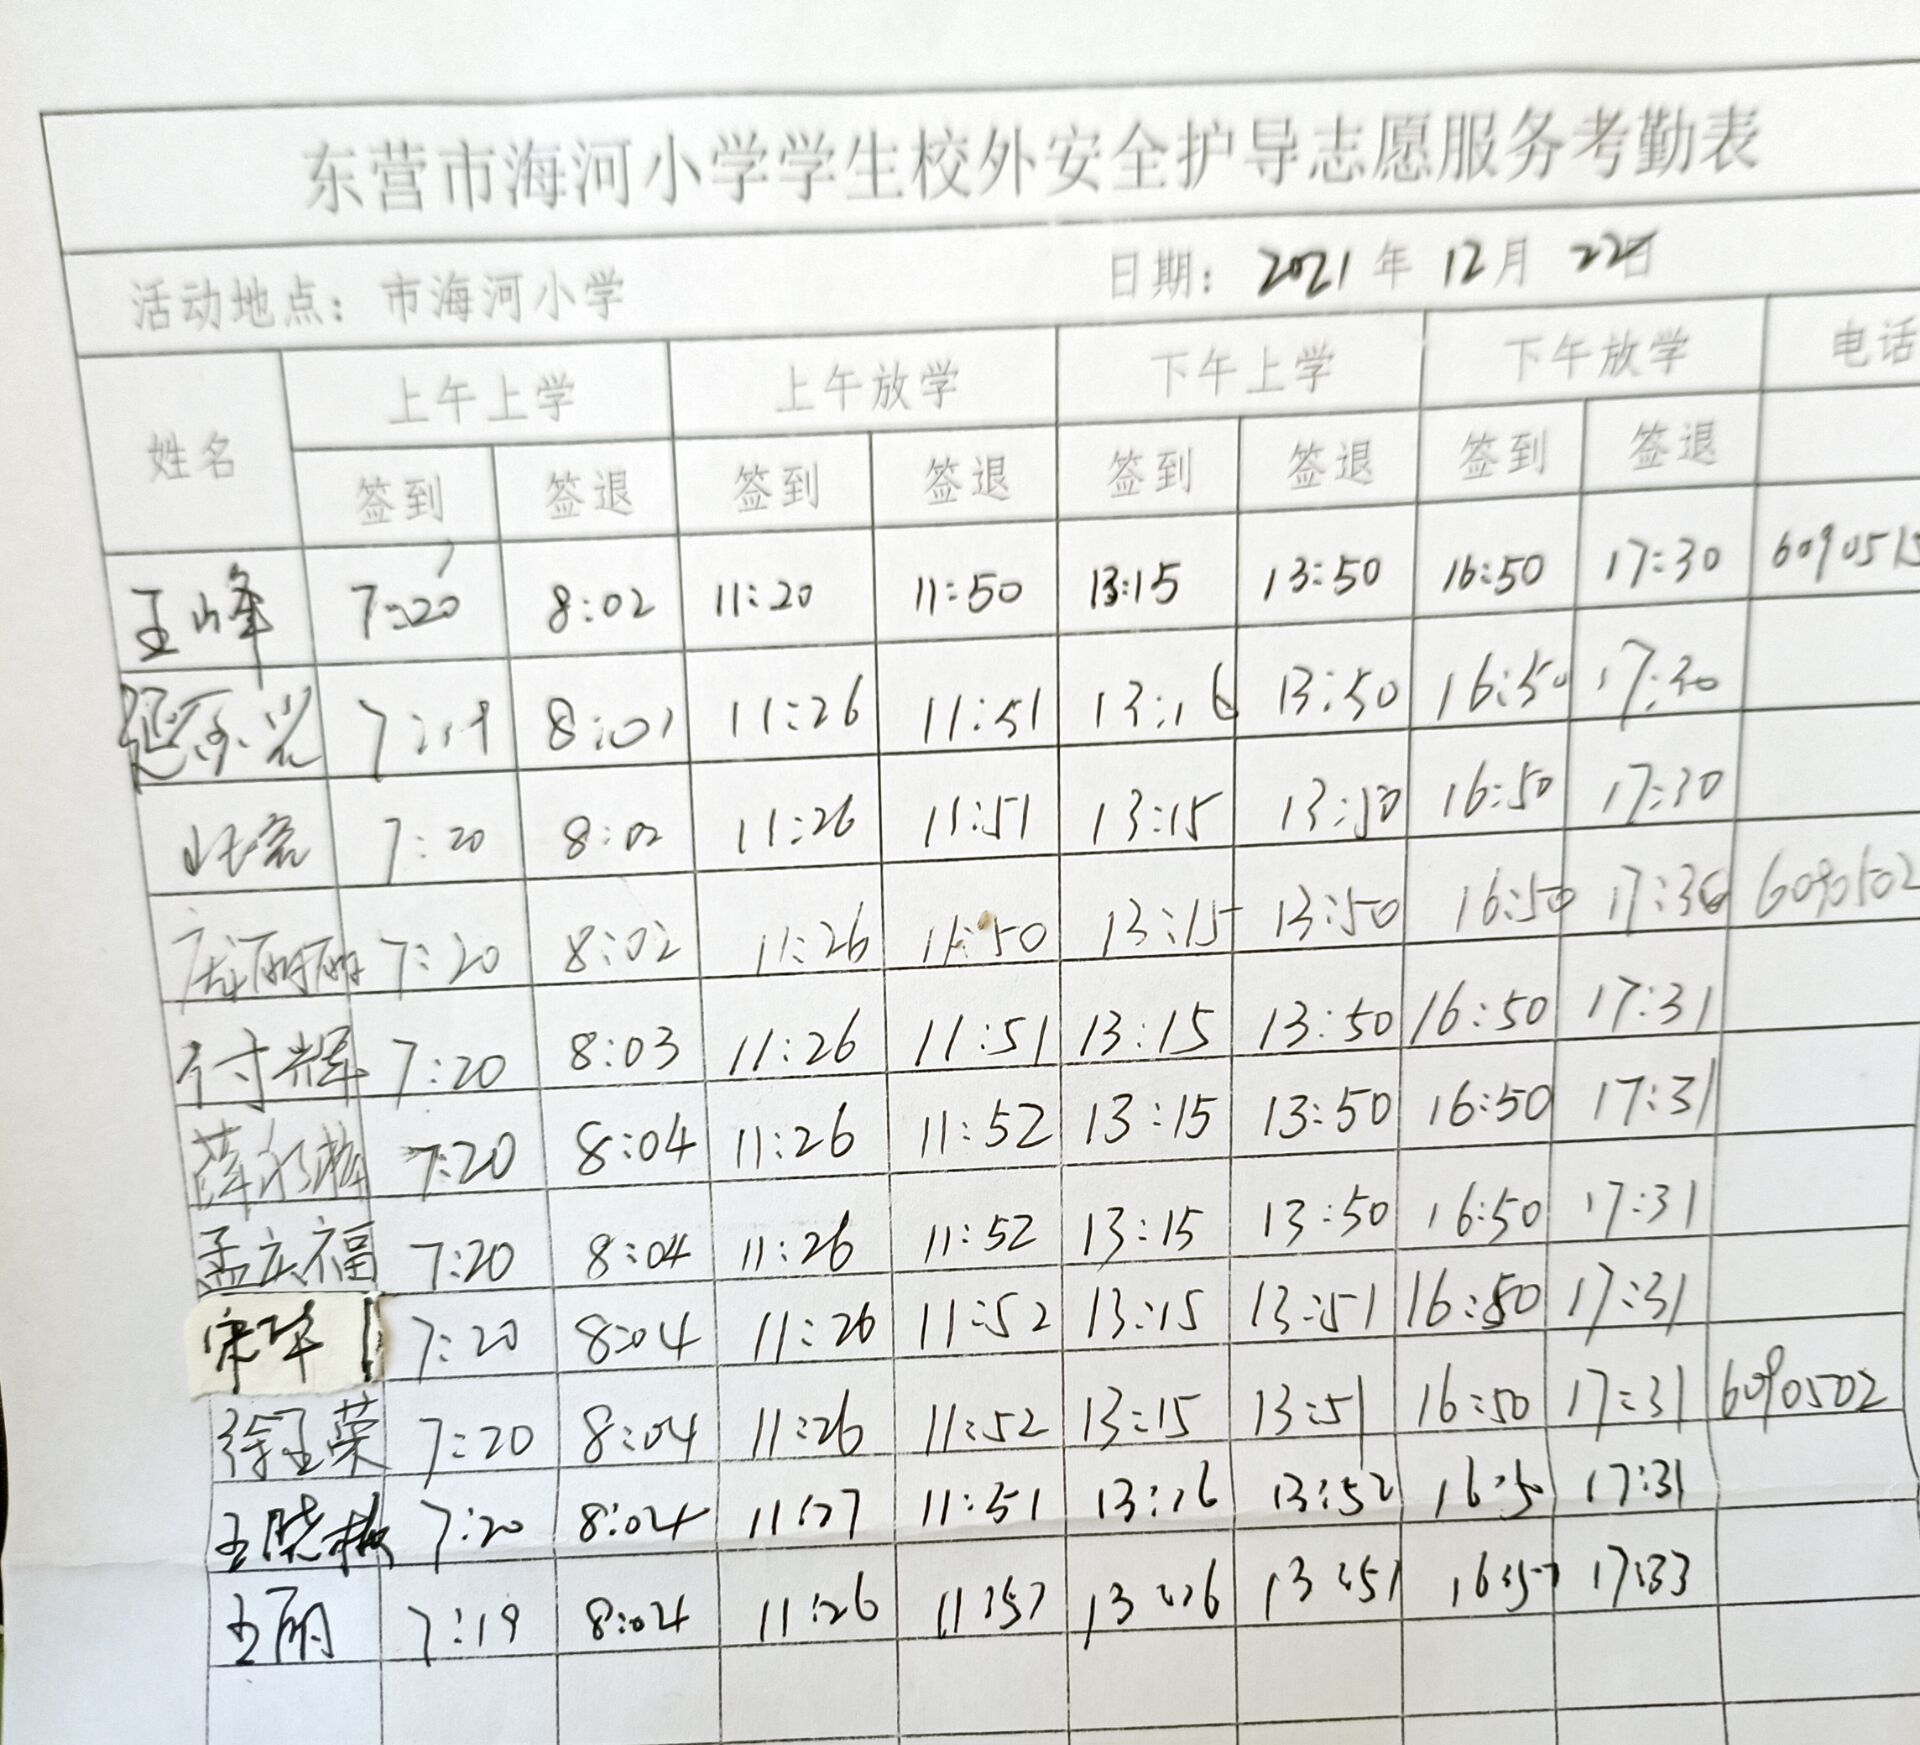 东营市海河小学学生校外安全护导志愿服务考勤表
活动地点：市海河小学 日期：2021年12月22日
姓名 上午上学 上午放学 下午上学 下午放学 电话
签到 签退 签到 签退 签到 签退 签到 签退
王峰 7:20 8:02 11:20 11:50 13:15 13:50 16:50 17:30 6090515
7:19 8:01 11:26 11:51 13:16 13:50 16:50 17:30
7:20 8:02 11:26 11:51 13:15 13:50 16:50 17:30
7:20 8:02 11:26 11:50 13:15 13:50 16:50 17:30 6090502
付辉 7:20 8:03 11:26 11:51 13:15 13:50 16:50 17:31
薛 7:20 8:04 11:26 11:52 13:15 13:50 16:50 17:31
孟庆福 7:20 8:04 11:26 11:52 13:15 13:50 16:50 17:31
宋华 7:20 8:04 11:26 11:52 13:15 13:51 16:50 17:31
徐玉荣 7:20 8:04 11:26 11:52 13:15 13:51 16:50 17:31 6090502
王晓 7:20 8:04 11:27 11:51 13:16 13:52 16:50 17:31
王丽 7:19 8:04 11:26 13:16 13:51 17:33